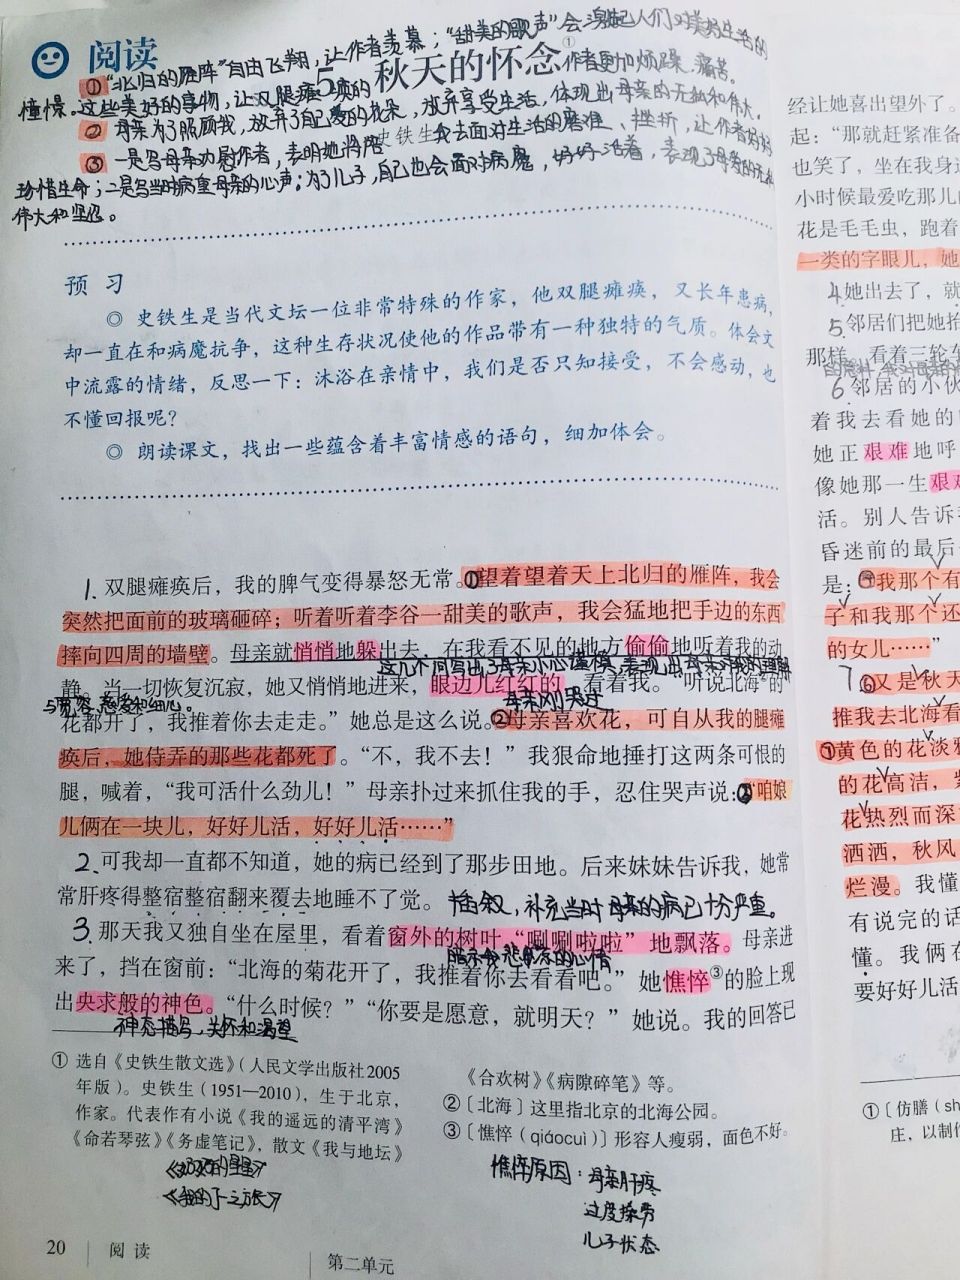 阅读
5 秋天的怀念①
史铁生
①“北归的雁阵”自由飞翔，让作者羡慕；“甜美的歌声”会激起人们对美好生活的
憧憬。这些美好的事物，让双腿瘫痪的作者更加烦躁、痛苦。
② 母亲为了照顾我，放弃了自己爱的花朵，放弃享受生活，体现出母亲的无私和伟大。
③ 一是写母亲劝慰作者，表明她将陪我去面对生活的磨难、挫折，让作者好好
珍惜生命；二是写当时病重母亲的心声：为了儿子，自己也会面对病魔，好好活着，表现了母亲的无私
伟大和坚忍。
预 习
◎ 史铁生是当代文坛一位非常特殊的作家，他双腿瘫痪，又长年患病，
却一直在和病魔抗争，这种生存状况使他的作品带有一种独特的气质。体会文
中流露的情绪，反思一下：沐浴在亲情中，我们是否只知接受，不会感动，也
不懂回报呢？
◎ 朗读课文，找出一些蕴含着丰富情感的语句，细加体会。
1. 双腿瘫痪后，我的脾气变得暴怒无常。①望着望着天上北归的雁阵，我会
突然把面前的玻璃砸碎；听着听着李谷一甜美的歌声，我会猛地把手边的东西
摔向四周的墙壁。母亲就悄悄地躲出去，在我看不见的地方偷偷地听着我的动
这几个词写出了母亲小心谨慎，表现出母亲对我的理解
静。当一切恢复沉寂，她又悄悄地进来，眼边儿红红的，看着我。“听说北海②的
与宽容、慈爱和细心。
母亲刚哭过
花都开了，我推着你去走走。”她总是这么说。②母亲喜欢花，可自从我的腿瘫
痪后，她侍弄的那些花都死了。“不，我不去！”我狠命地捶打这两条可恨的
腿，喊着，“我可活什么劲儿！”母亲扑过来抓住我的手，忍住哭声说：③“咱娘
儿俩在一块儿，好好儿活，好好儿活……”
2. 可我却一直都不知道，她的病已经到了那步田地。后来妹妹告诉我，她常
常肝疼得整宿整宿翻来覆去地睡不了觉。 插叙，补充当时母亲的病已十分严重。
3. 那天我又独自坐在屋里，看着窗外的树叶“唰唰啦啦”地飘落。母亲进
暗示我悲凉的心情
来了，挡在窗前：“北海的菊花开了，我推着你去看看吧。”她憔悴③的脸上现
出央求般的神色。“什么时候？”“你要是愿意，就明天？”她说。我的回答已
神态描写，关怀和渴望
① 选自《史铁生散文选》（人民文学出版社2005
年版）。史铁生（1951—2010），生于北京，
作家。代表作有小说《我的遥远的清平湾》
《命若琴弦》《务虚笔记》，散文《我与地坛》
《合欢树》《病隙碎笔》等。
②〔北海〕这里指北京的北海公园。
③〔憔悴（qiáocuì）〕形容人瘦弱，面色不好。
《奶奶的星星》
《我的丁一之旅》
憔悴原因：母亲肝疼
过度操劳
儿子状态
20 阅读
第二单元
经让她喜出望外了。
起：“那就赶紧准备
也笑了，坐在我身边
小时候最爱吃那儿的
花是毛毛虫，跑着
一类的字眼儿，她
4 她出去了，就
5 邻居们把她抬
那样。看着三轮车
6 邻居的小伙
着我去看她的
她正艰难地呼
像她那一生艰难
活。别人告诉我
昏迷前的最后
是：“我那个有
子和我那个还
的女儿……”
7 ⑥又是秋天
推我去北海看
⑦黄色的花淡雅
的花高洁，紫
花热烈而深
洒洒，秋风
烂漫。我懂
有说完的话
懂。我俩在
要好好儿活
①〔仿膳（sh
庄，以制作